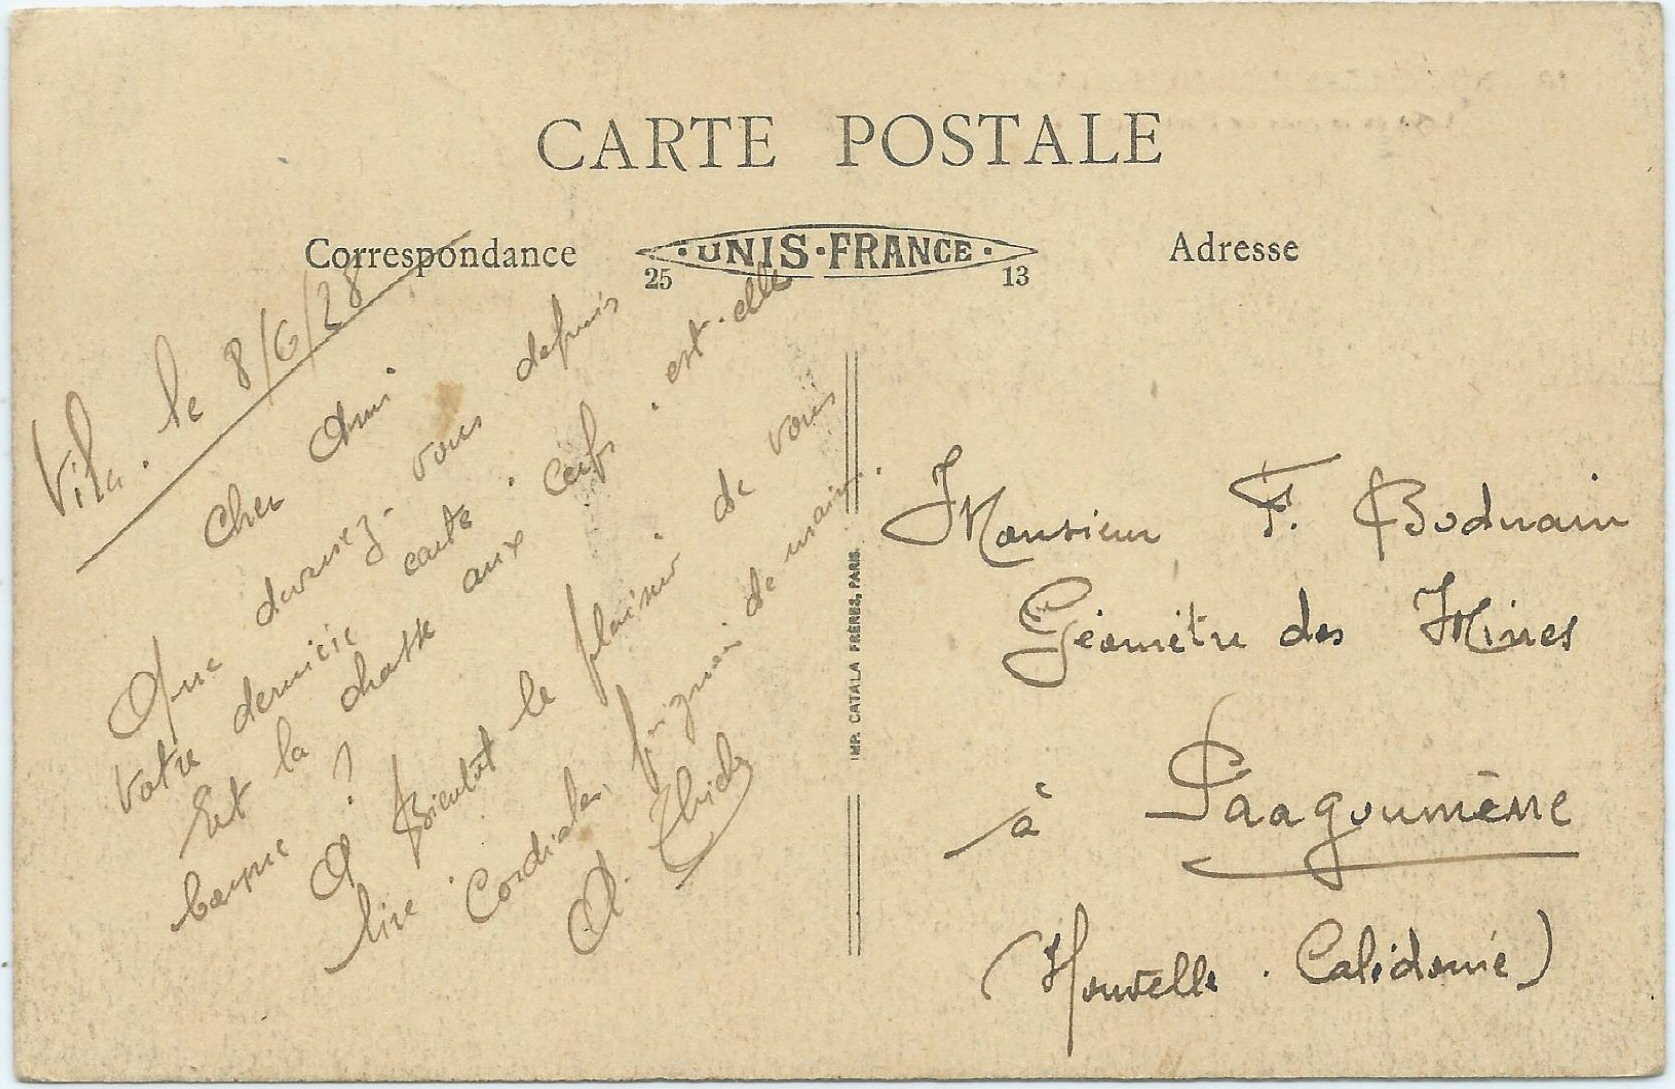 CARTE POSTALE
Correspondance
·UNIS·FRANCE·
25 13
Adresse
Vila. le 8/6/28
Cher Ami
Que devenez-vous depuis
votre dernière carte.
Et la chasse aux cerfs. est-elle
bonne ?
A Bientôt le plaisir de vous
lire. Cordiales poignées de main.
A.
IMP. CATALA FRÈRES, PARIS
Monsieur F. Boduain
Géomètre des Mines
à Paagoumène
(Nouvelle-Calédonie)